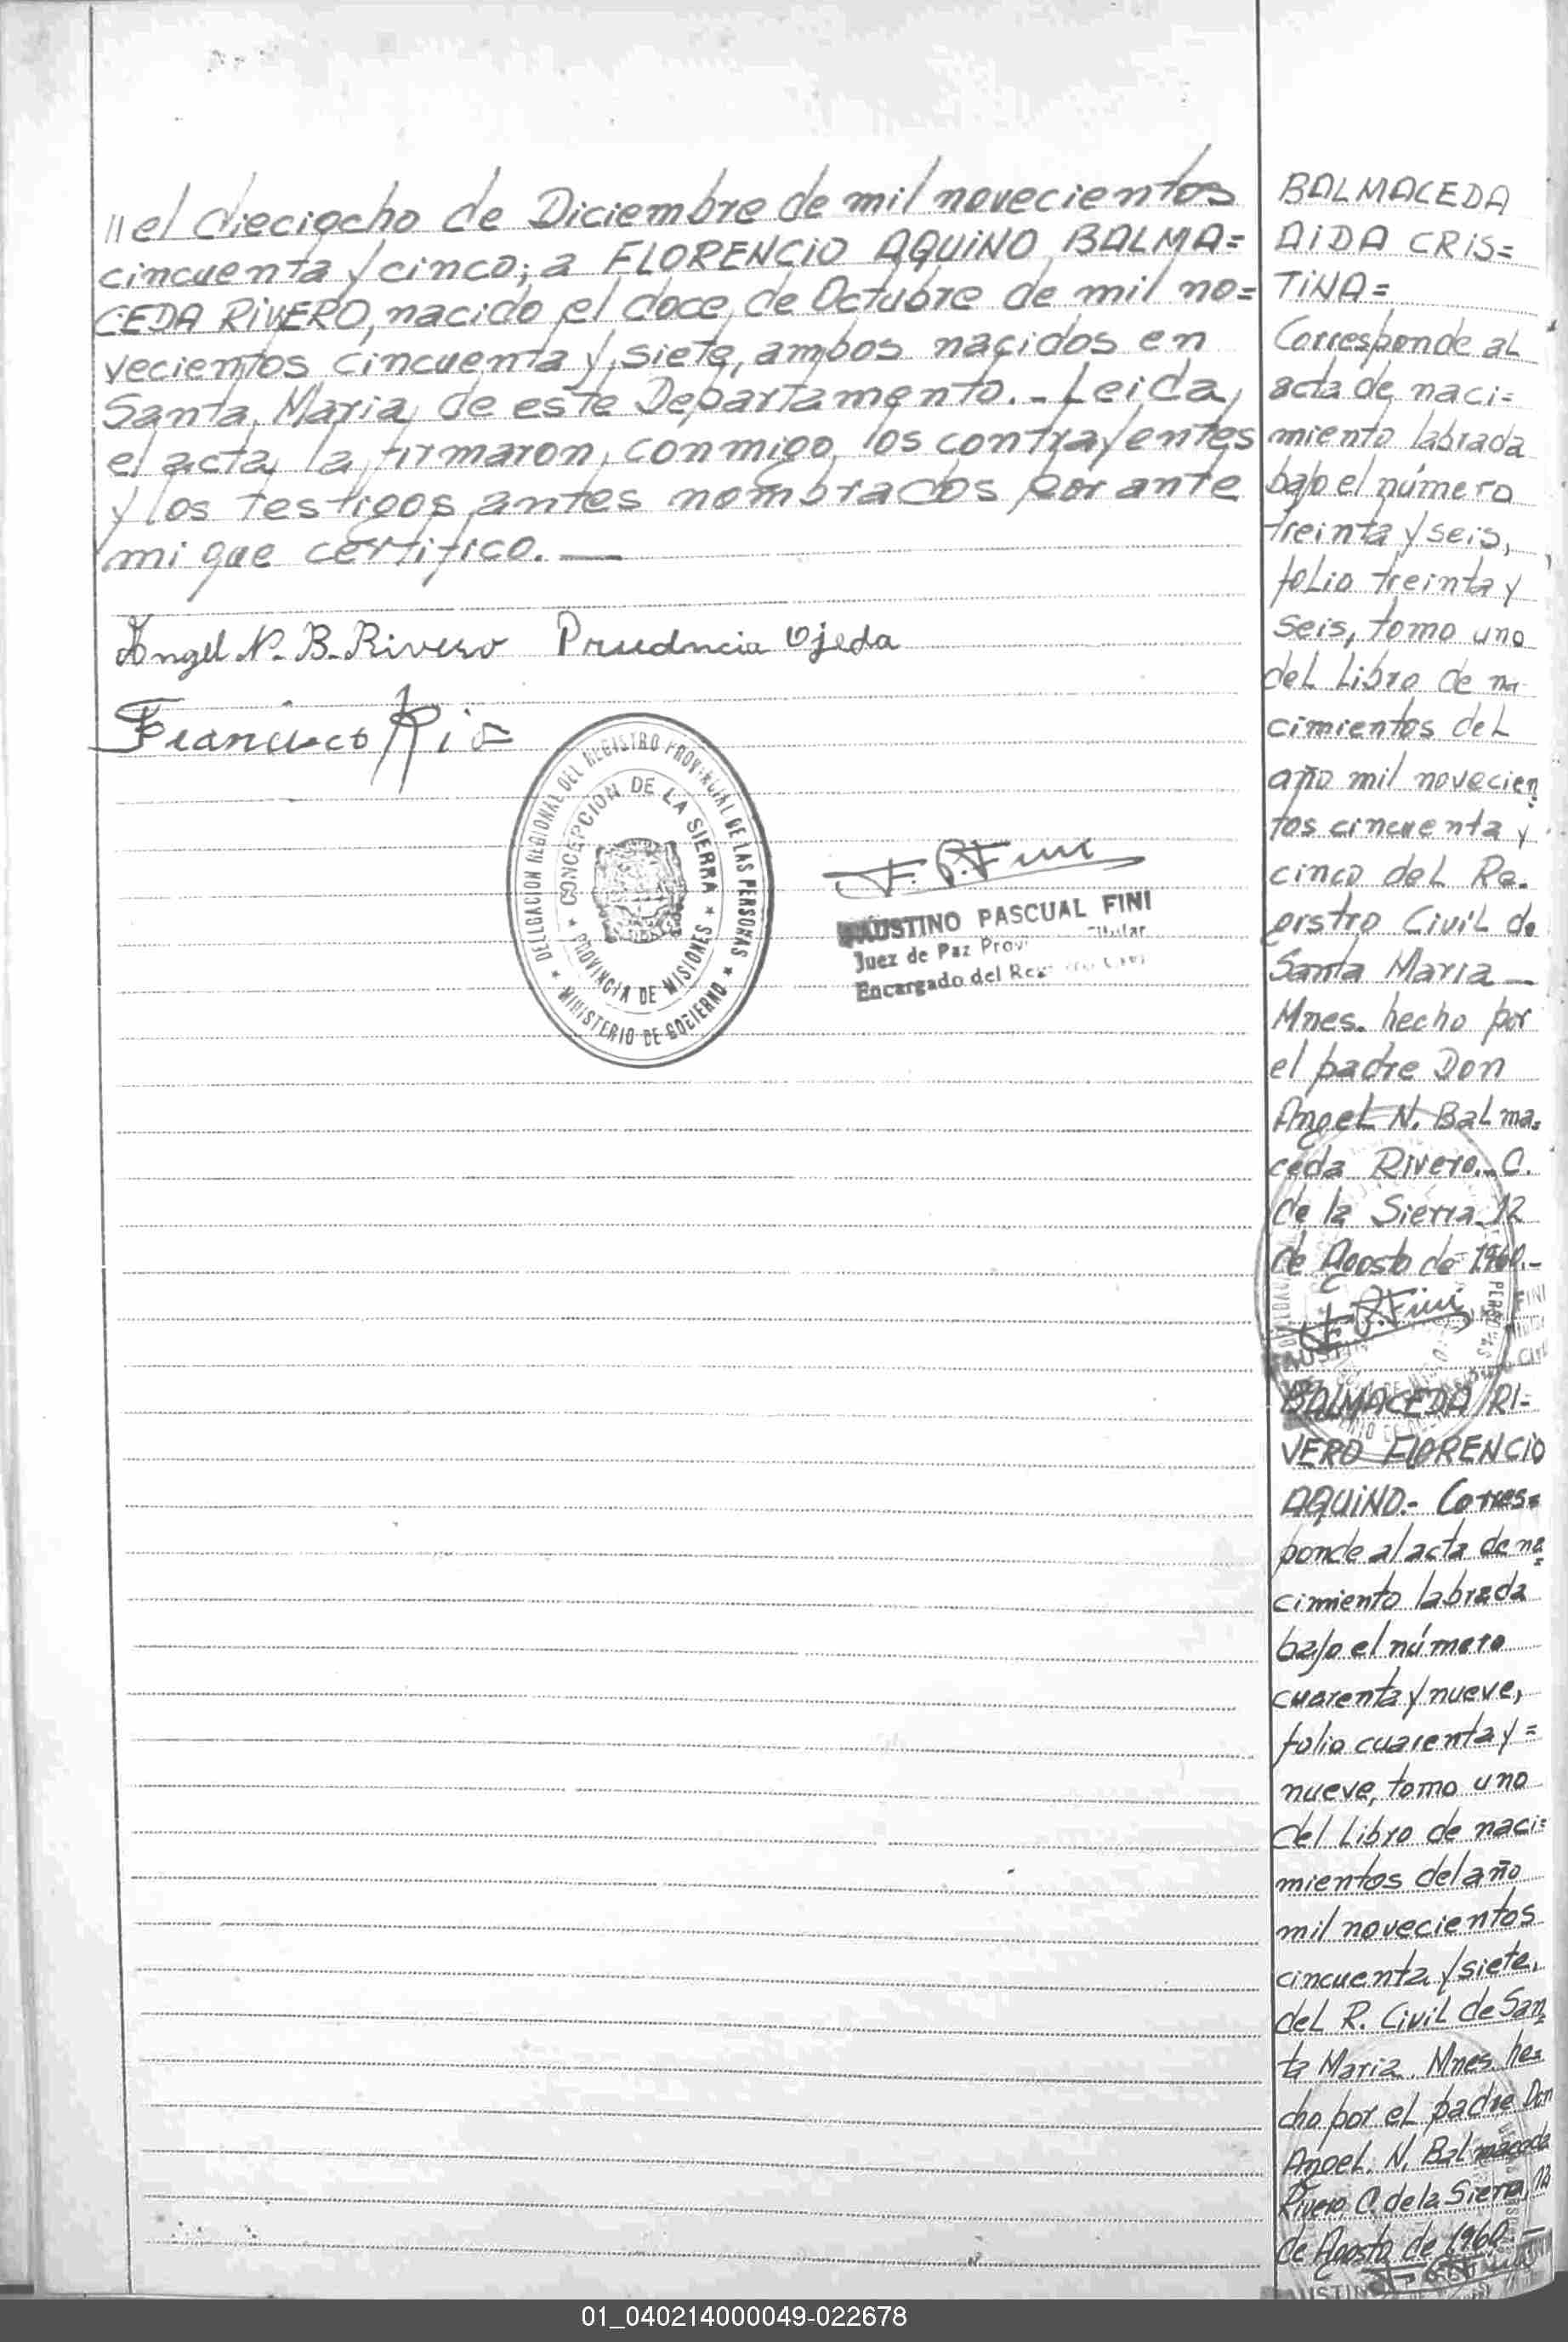 // el dieciocho de Diciembre de mil novecientos
cincuenta y cinco; a FLORENCIO AQUINO BALMA=
CEDA RIVERO, nacido el doce de Octubre de mil no=
vecientos cincuenta y siete, ambos nacidos en
Santa Maria de este Departamento._ Leida,
el acta, la firmaron, conmigo, los contrayentes
y los testigos antes nombrados por ante
mi que certifico. —
Angel N. B. Rivero Prudncia Ojeda
Francisco
DELEGACION REGIONAL DEL REGISTRO PROVINCIAL DE LAS PERSONAS
★ MINISTERIO DE GOBIERNO ★
CONCEPCION DE LA SIERRA
★ PROVINCIA DE MISIONES ★
F. P. Fini
FAUSTINO PASCUAL FINI
Juez de Paz
Encargado del
BALMACEDA
AIDA CRIS=
TINA=
Corresponde al
acta de naci=
miento labrada
bajo el número
treinta y seis,
folio treinta y
seis, tomo uno
del Libro de na
cimientos del
año mil novecien
tos cincuenta y
cinco del Re.
gistro Civil de
Santa Maria _
Mnes. hecho por
el padre Don
Angel N. Balma=
ceda Rivero._ C.
de la Sierra 12
de Agosto de 1960.-
F. P. Fini
BALMACEDA RI=
VERO FLORENCIO
AQUINO.- Corres=
ponde al acta de na
cimiento labrada
bajo el número
cuarenta y nueve,
folio cuarenta y =
nueve, tomo uno
del Libro de naci=
mientos del año
mil novecientos
cincuenta y siete,
del R. Civil de San
ta Maria. Mnes. he=
cho por el padre Don
Angel. N. Balmaceda
Rivero, C. de la Sierra, 12
de Agosto de 1960.-
01_040214000049-022678